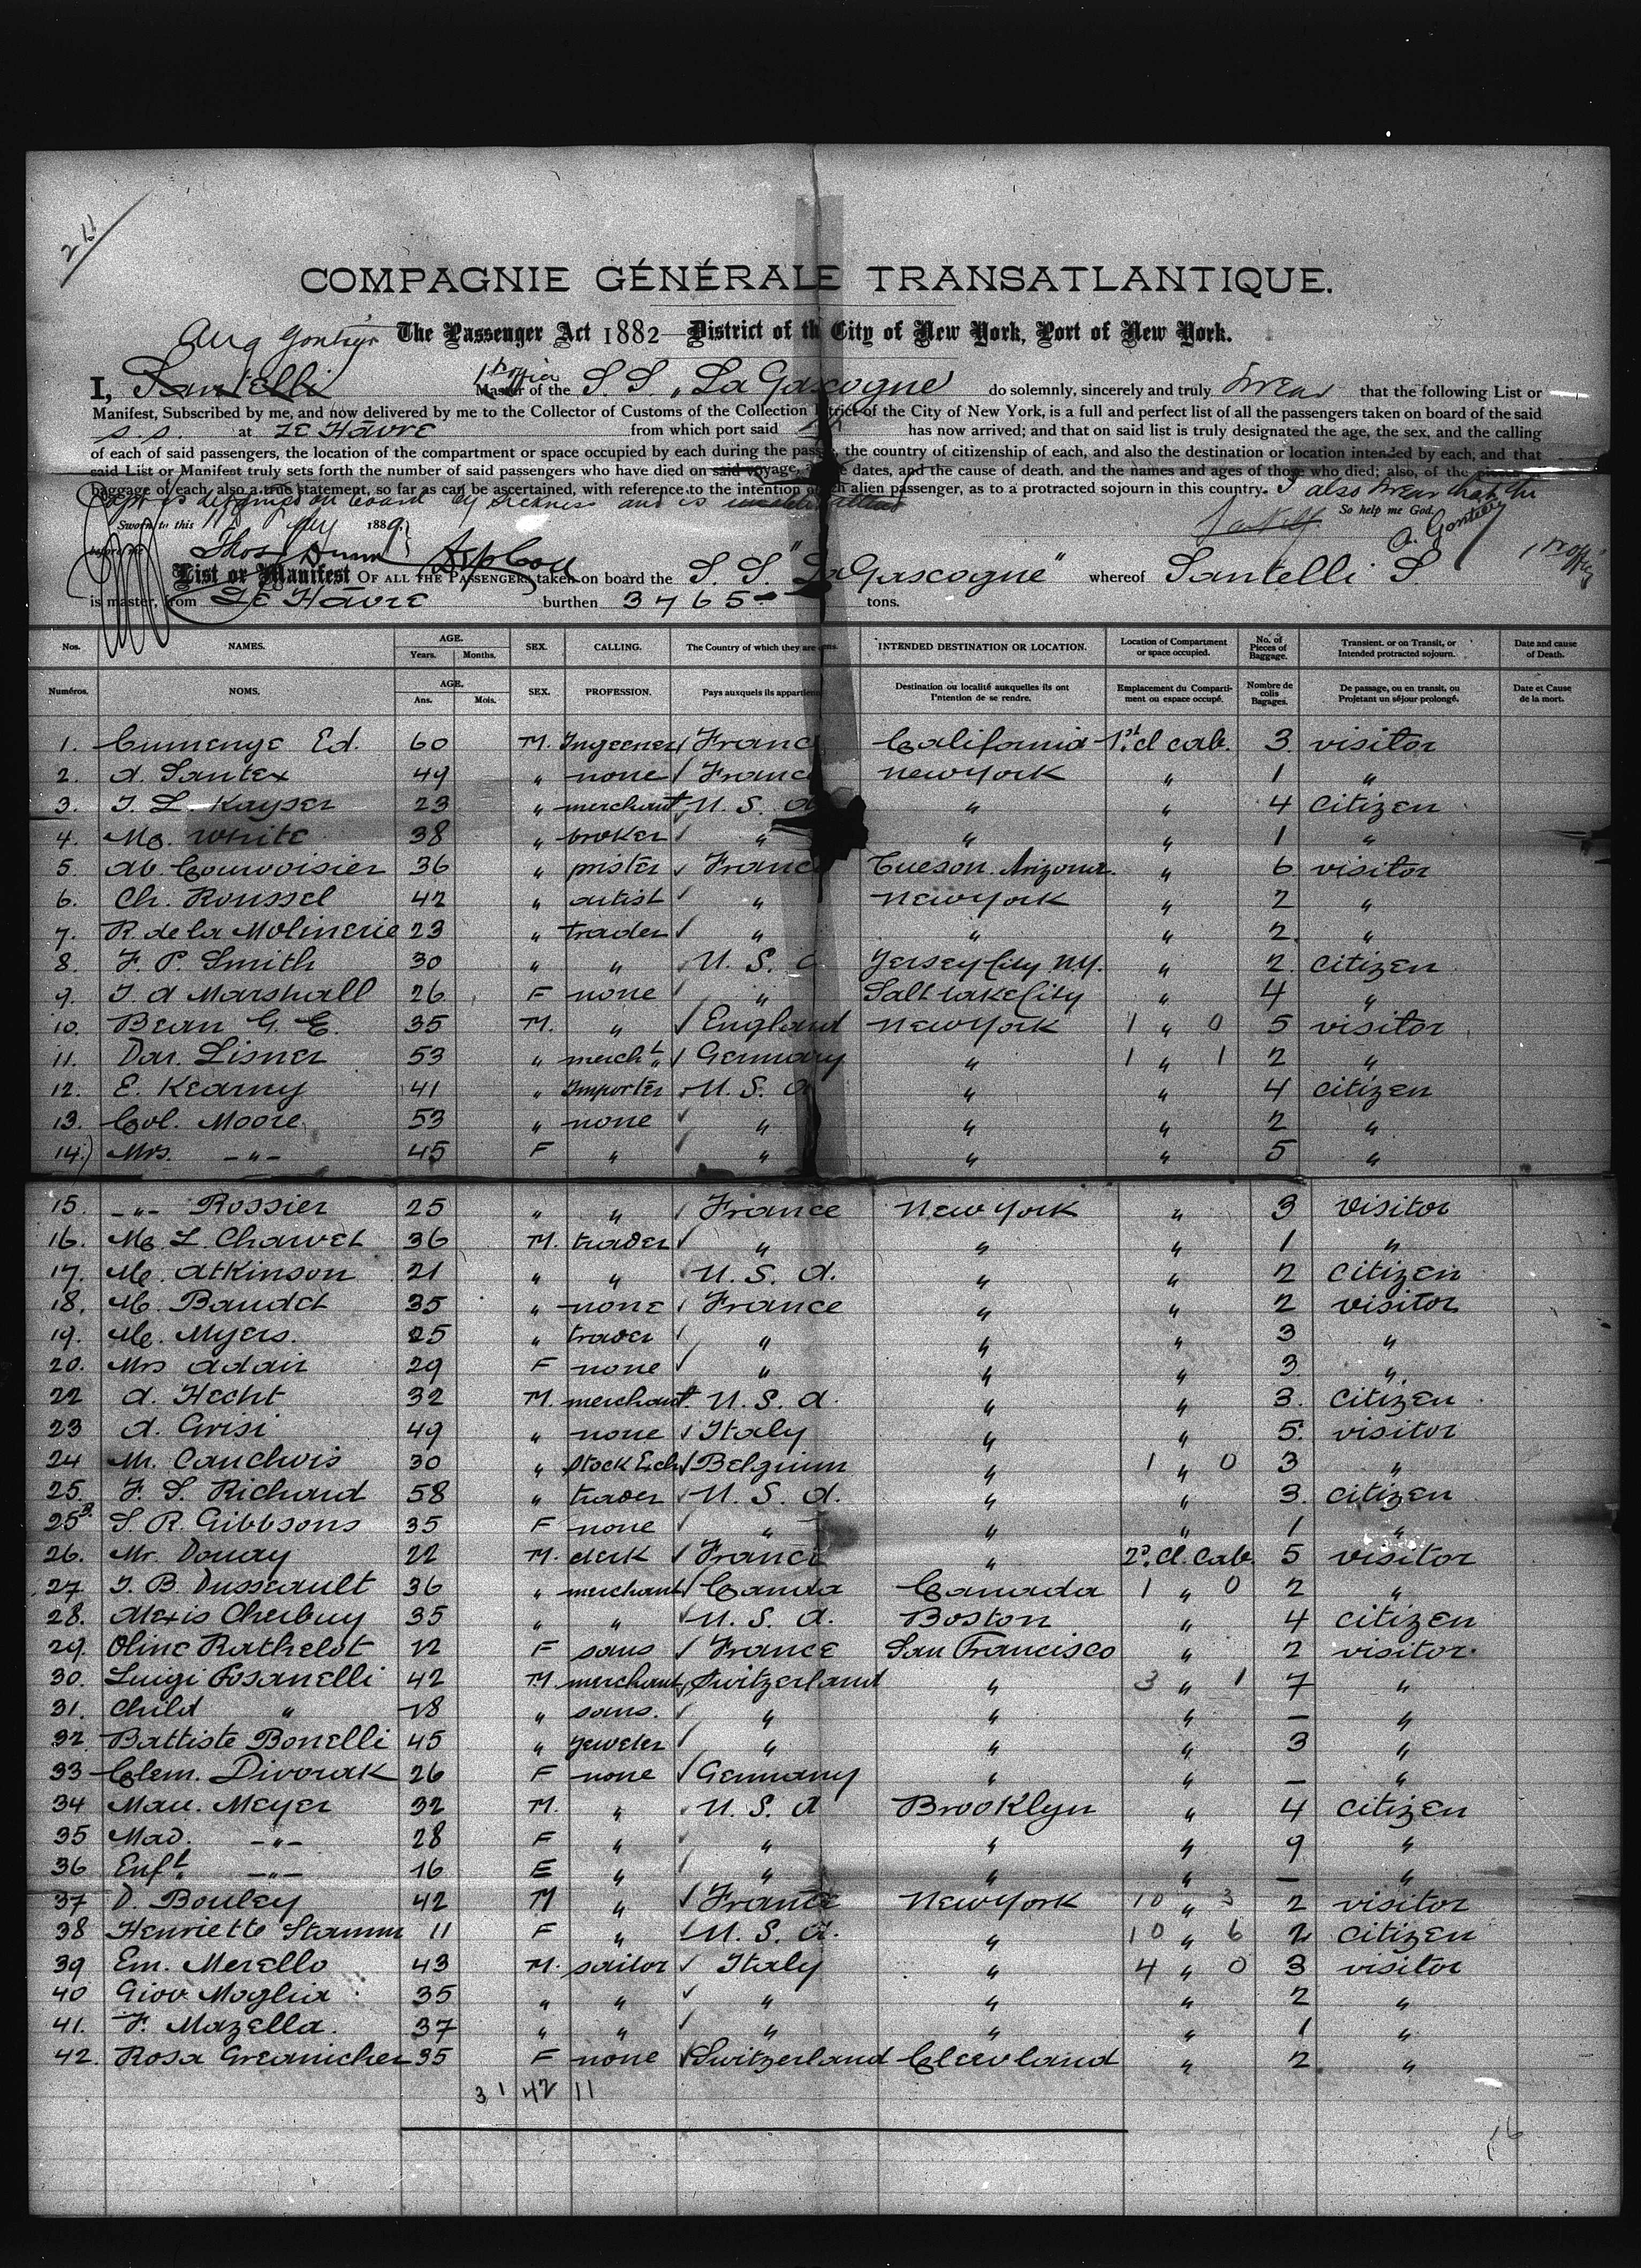 211
COMPAGNIE GÉNÉRALE TRANSATLANTIQUE.
Aug The Passenger Act 1882—District of the City of New York, Port of New York.
I, Santelli 1st officer Master of the S. S. "La Gascogne do solemnly, sincerely and truly swear that the following List or
Manifest, Subscribed by me, and now delivered by me to the Collector of Customs of the Collection District of the City of New York, is a full and perfect list of all the passengers taken on board of the said
S.S. at LE Hâvre from which port said has now arrived; and that on said list is truly designated the age, the sex, and the calling
of each of said passengers, the location of the compartment or space occupied by each during the passage, the country of citizenship of each, and also the destination or location intended by each; and that
said List or Manifest truly sets forth the number of said passengers who have died on said voyage, the dates, and the cause of death, and the names and ages of those who died; also, of the pieces
baggage of each, also a true statement, so far as can be ascertained, with reference to the intention of each alien passenger, as to a protracted sojourn in this country. I also swear that the
Capt is detained on board by sickness and is
Sworn to this 1889 So help me God.
before me Thos Dunn A. 1st off
List or Manifest OF ALL THE PASSENGERS taken on board the S. S. "La Gascogne" whereof Santelli S.
is master, from LE Hâvre burthen 3765 tons.
Nos. NAMES. AGE. Years. Months. SEX. CALLING. The Country of which they are citizens. INTENDED DESTINATION OR LOCATION. Location of Compartment or space occupied. No. of Pieces of Baggage. Transient, or on Transit, or Intended protracted sojourn. Date and cause of Death.
Numéros. NOMS. AGE. Ans. Mois. SEX. PROFESSION. Pays auxquels ils appartiennent. Destination ou localité auxquelles ils ont l'intention de se rendre. Emplacement du Compartiment ou espace occupé. Nombre de colis Bagages. De passage, ou en transit, ou Projetant un séjour prolongé. Date et Cause de la mort.
1. Cumenge Ed. 60 M. Ingeener France California 1st cl cab. 3. visitor
2. A. Santex 49 " none France New York " 1 "
3. J. L. Kayser 23 " merchant U. S. A " " 4 citizen
4. Mo. White 38 " broker " " " 1 "
5. Ab. Courvoisier 36 " prister France Tueson. Arizona. " 6 visitor
6. Ch. Roussel 42 " artist " New York " 2 "
7. R. de la Molinerie 23 " trader " " " 2. "
8. F. P. Smith 30 " " U. S. A Jersey City N.Y. " 2. citizen
9. J. A Marshall 26 F none " Salt Lake City " 4 "
10. Bean G. E. 35 M. " England New York 1 " 0 5 visitor
11. Dar. Lisner 53 " mercht " Germany " 1 " 1 2 "
12. E. Kearny 41 " Importer U. S. A " " 4 citizen
13. Col. Moore 53 " none " " " 2 "
14.) Mrs. -"- 45 F " " " " 5 "
15. -"- Rossier 25 " " France New York " 3 visitor
16. Mo. L. Chauvet 36 M. trader " " " 1 "
17. Mo. Atkinson 21 " " U. S. A. " " 2 citizen
18. Mo. Baudet 35 " none France " " 2 visitor
19. Mo. Myers. 25 " trader " " " 3 "
20. Mrs Adair 29 F none " " " 3. "
22 A. Hecht 32 M. merchant U. S. A. " " 3. citizen
23 A. Grisi 49 " none Italy " " 5. visitor
24 M. Cauchois 30 " Stock Exch Belgium " 1 " 0 3 "
25. F. S. Richard 58 " trader U. S. A. " " 3. citizen
25B. S. R. Gibbsons 35 F none " " " 1 "
26. Mr. Douay 22 M. clerk France " 2d. cl. cab. 5 visitor
27 J. B. Dusseault 36 " merchant Canda Canada 1 " 0 2 "
28. Alexis Cherbuy 35 " " U. S. A. Boston " 4 citizen
29. Oline Rathelot 22 F sans France San Francisco " 2 visitor
30. Luigi Fosanelli 42 M merchant Switzerland " 3 " 1 7 "
31. Child " 18 " sans. " " " — "
32 Battiste Bonelli 45 " jeweler " " " 3 "
33 Clem. Divorak 26 F none Germany " " — "
34 Mau. Meyer 32 M. " U. S. A Brooklyn " 4 citizen
35 Mad. -"- 28 F " " " " 9 "
36 Enft. -"- 16 E " " " " — "
37 D. Bouley 42 M " France New York 10 " 3 2 visitor
38 Henriette Stamm 11 F " U. S. A. " 10 " 6 2 citizen
39 Em. Merello 43 M. sailor Italy " 4 " 0 3 visitor
40 Giov Moglia 35 " " " " " 2 "
41. F. Mazella. 37 " " " " " 1 "
42. Rosa Greanicher 35 F none Switzerland Cleevland " 2 "
31 42 11
16